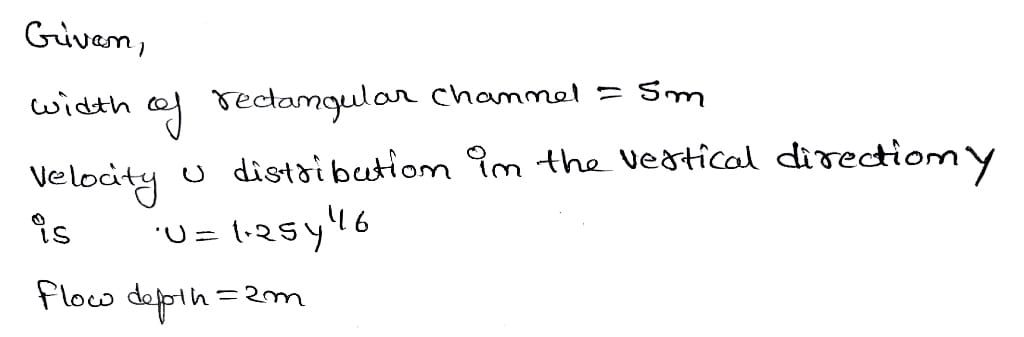 Given,
width of rectangular channel = 5m
Velocity u distribution in the vertical direction y
is u = 1.25y^1/6
flow depth = 2m